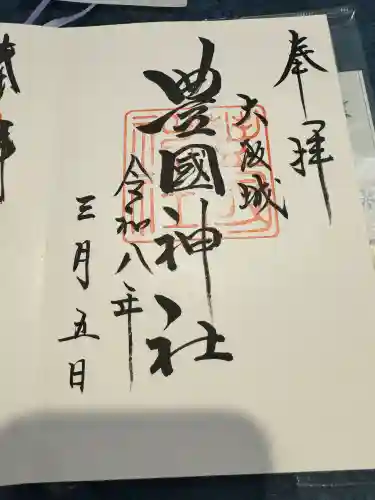 奉拝
大阪城
豊國神社
令和八年
三月五日
拝